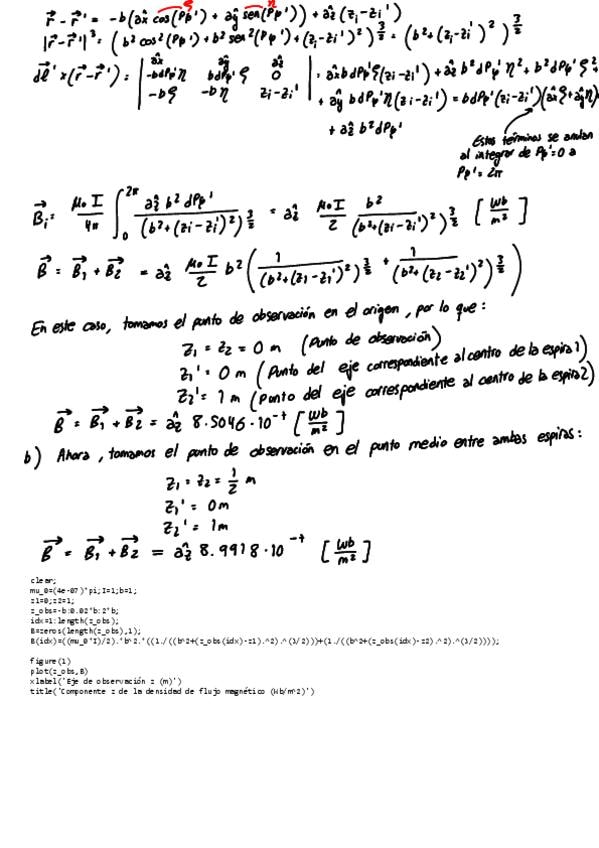 r⃗ - r⃗' = -b(âx cos(φp') + ây sen(φp')) + âz(zi-zi')
ρ η
|r⃗-r⃗'|³ = (b² cos²(φp') + b² sen²(φp') + (zi-zi')²)^(3/2) = (b²+(zi-zi')²)^(3/2)
dl⃗' × (r⃗-r⃗') = | âx ây âz | = âx b dφp' ρ(zi-zi') + âz b² dφp' η² + b² dφp' ρ² +
| -b dφp' η b dφp' ρ 0 | + ây b dφp' η(zi-zi') = b dφp'(zi-zi')(âx ρ + ây η)
| -bρ -bη zi-zi' | + âz b² dφp'
Estos términos se anulan
al integrar de φp'=0 a
φp'=2π
B⃗i = μ₀ I / 4π ∫₀^2π âz b² dφp' / (b²+(zi-zi')²)^(3/2) = âz μ₀ I / 2 b² / (b²+(zi-zi')²)^(3/2) [Wb/m²]
B⃗ = B⃗1 + B⃗2 = âz μ₀ I / 2 b² ( 1 / (b²+(z1-z1')²)^(3/2) + 1 / (b²+(z2-z2')²)^(3/2) )
En este caso, tomamos el punto de observación en el origen, por lo que:
z1 = z2 = 0 m (Punto de observación)
z1' = 0 m (Punto del eje correspondiente al centro de la espira 1)
z2' = 1 m (Punto del eje correspondiente al centro de la espira 2)
B⃗ = B⃗1 + B⃗2 = âz 8.5046·10⁻⁷ [Wb/m²]
b) Ahora, tomamos el punto de observación en el punto medio entre ambas espiras:
z1 = z2 = 1/2 m
z1' = 0m
z2' = 1m
B⃗ = B⃗1 + B⃗2 = âz 8.9918·10⁻⁷ [Wb/m²]
clear;
mu_0=(4e-07)*pi;I=1;b=1;
z1=0;z2=1;
z_obs=-b:0.02*b:2*b;
idx=1:length(z_obs);
B=zeros(length(z_obs),1);
B(idx)=((mu_0*I)/2).*b^2.*((1./((b^2+(z_obs(idx)-z1).^2).^(3/2)))+(1./((b^2+(z_obs(idx)-z2).^2).^(3/2))));
figure(1)
plot(z_obs,B)
xlabel('Eje de observación z (m)')
title('Componente z de la densidad de flujo magnético (Wb/m^2)')